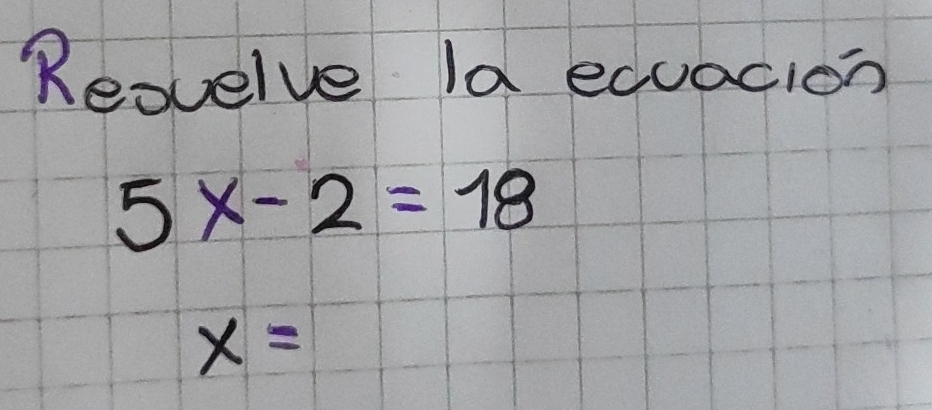 Resuelve la ecuación
5x-2=18
x=